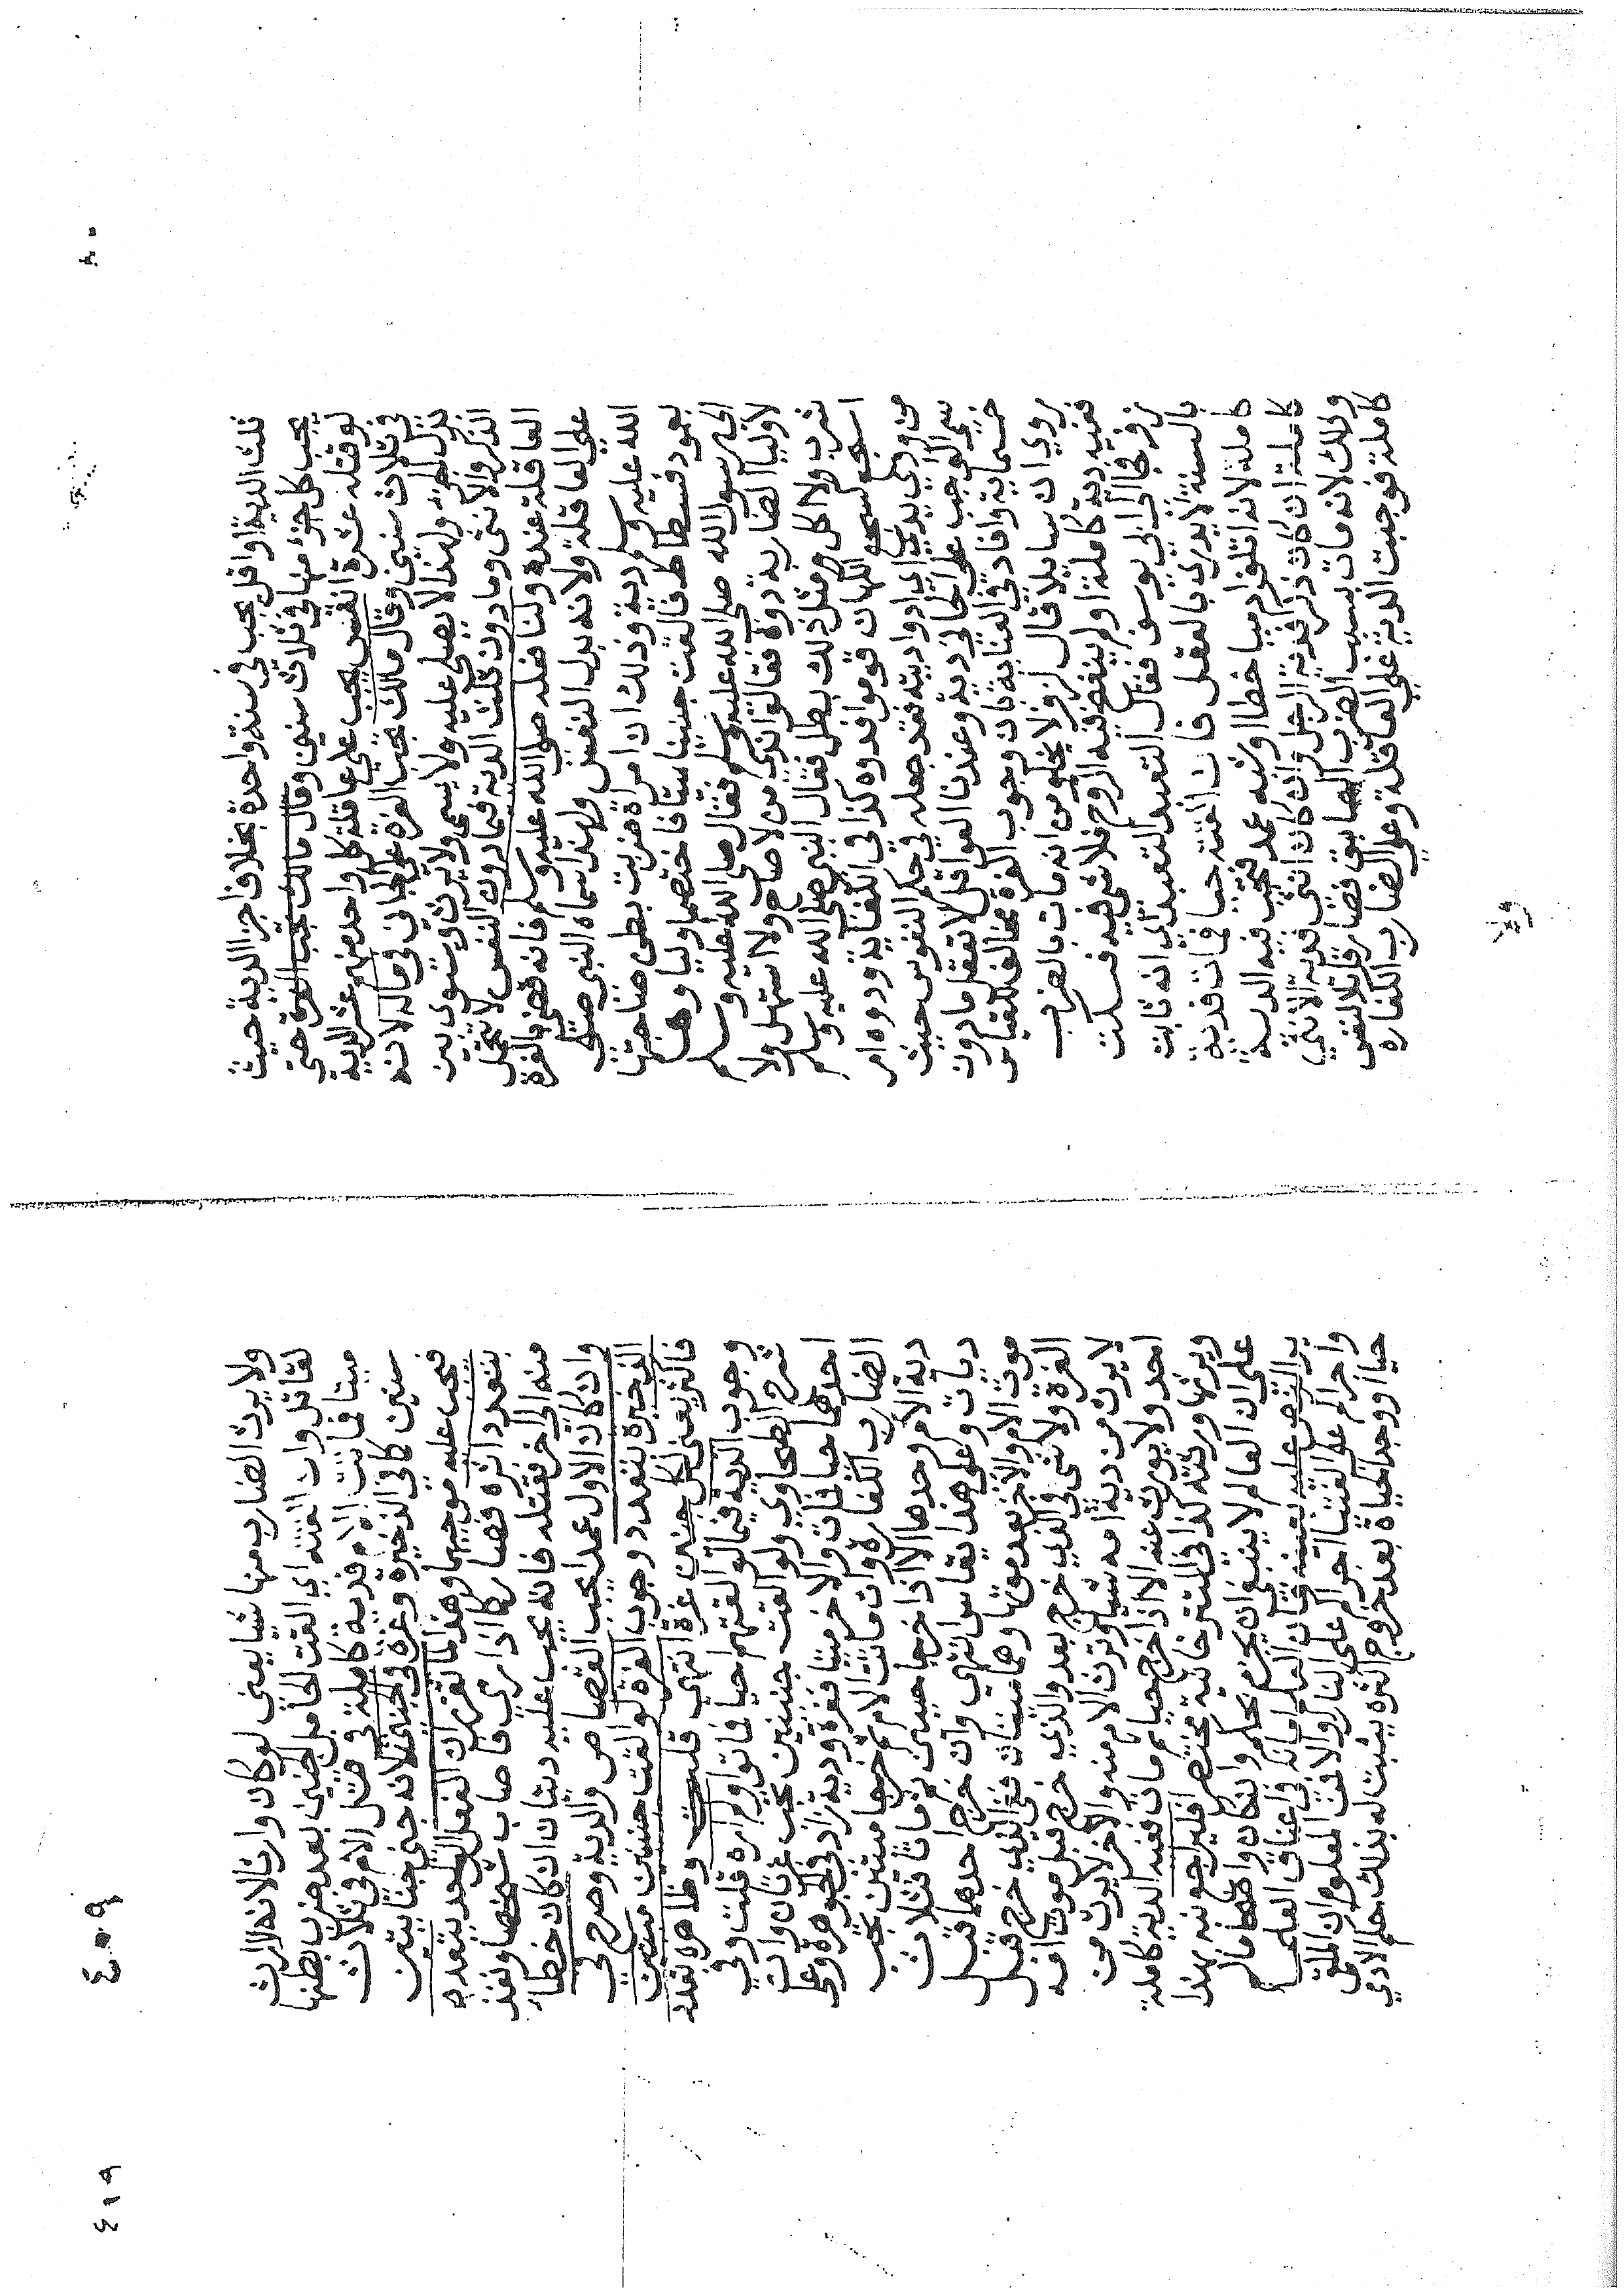 ثلث الدية او اقل يجب في سنة واحدة بخلاف اجزا الدية حيث
يجب كل جزء منها في ثلاث سنين وقال مالك تجب الغرة حتى
لو قتله عشرة انفس يجب على عاقلة كل واحد منهم عشر الدية
في ثلاث سنين وقال مالك تجب الغرة على الجاني في ماله لانه
بدل الجزء ولهذا لا يصلى عليه ولا يسمى ولا يرث ويستوي بين
الذكر والانثى وما دون ثلث الدية فيما دون النفس لا تتحمل
العاقلة عنده ولنا فعله صلى الله عليه وسلم فانه قضى بالغرة
على العاقلة ولانه بدل النفس ولهذا سماه النبي صلى
الله عليه وسلم دية وذلك ان امراة ضربت بطن ضرتها
بعمود فسطاط فالقت جنينا ميتا فاختصم اوليا وهما
الى رسول الله صلى الله عليه وسلم فقال صلى الله عليه وسلم
لاوليا الضاربة دوه فقالوا اندي من لا صاح ولا استهل ولا
شرب ولا اكل ومثل ذلك يطل فقال النبي صلى الله عليه وسلم
اسجع كسجع الكهان قوموا فدوه كذا في الكفاية ودوه امر
من ودى يدي اي ادوا ديته فقد جعله في حكم النفوس حيث
سمى الواجب على الجاني دية وعندنا العواقل لا تعقل ما دون
خمسماية وافاد في العناية بان وجوب الغرة مخالف للقياس
روي ان سايلا قال لزفر لا يخلو من انه مات بالضرب
ففيه دية كاملة او لم ينفخ فيه الروح فلا شي فيه فسكت
زفر فجا الى ابي يوسف فقال التعبد التعبد اي انه ثابت
بالسنة لا يدرى بالعقل فان القته حيا فمات فدية
كاملة لانه اتلف ادميا خطا او شبه عمد فتجب فيه الدية
كاملة ان كان ذكرا فدية الرجل وان كان انثى فدية الانثى
وذلك لانه مات بسبب الضرب السابق فصار قاتلا لنفس
كاملة فوجبت الدية على العاقلة وعلى الضارب الكفاره
ولا يرث الضارب منها شيا يعني لو كان وارثا لانه لا ارث
لقاتل وان القته اي القت الحامل الجنين بعد ضرب بطنها
ميتا فماتت الام فدية كاملة في قتل الام في ثلاث
سنين كما في الذخيرة وغرة في الجنين لانه جنى جنايتين
فيجب عليه موجبهما وهذا لما تقرر ان الفعل الواحد يتعدد
بتعدد اثره فصار كما اذا رمى فاصاب شخصا ونفذ
منه الى اخر فقتله فانه يجب عليه ديتان ان كان خطاء
وان كان الاول عمدا يجب القصاص والدية وصرح في
الذخيرة بتعدد وجوب الغرة لو القت جنينين ميتين
فاكثر يعني لكل جنين غرة انتهى قلت وظاهره تعدد
وجوب الدية فيما لو القتهم احيا فماتوا ولم اره قلت وفي
شرح الطحاوي ولو القت جنينين يجب غرتان وان
احدهما حيا فمات والاخر ميتا فغرة ودية زاد في الجوهرة وعلى
الضارب الكفارة وان ماتت الام ثم خرجا ميتين يجب
دية الام وحدها الا اذا خرجا حيين ثم ماتا فثلاث
ديات وعلى هذا يقاس انتهى وان خرج احدهما قبل
موت الام والاخر بعد موتها وهما ميتان ففي الذي خرج قبل
الغرة ولا شي في الذي خرج بعد والذي خرج قبل موت امه
لا يرث من دية امه شيا وترث الام منه والاخر لا يرث من
احد ولا يورث عنه الا اذا خرج حيا ثم مات ففيه الدية كاملة
ويرثها ورثته كذا في التترخانية مختصرا فليراجع نبه بهذا
على ان العالم لا ينبغي ان يجزم بحكم وان كان واضحا مالم
ير النص عليه بعينه فان العلم امانة في اعناق العلما
واجراكم على الفتيا اجراكم على النار والافت المعلوم ان الملقى
حيا او وجد حياة بعد خروج اكثره يثبت له بذلك حكم الادمي
٤٠٩
٤١٩